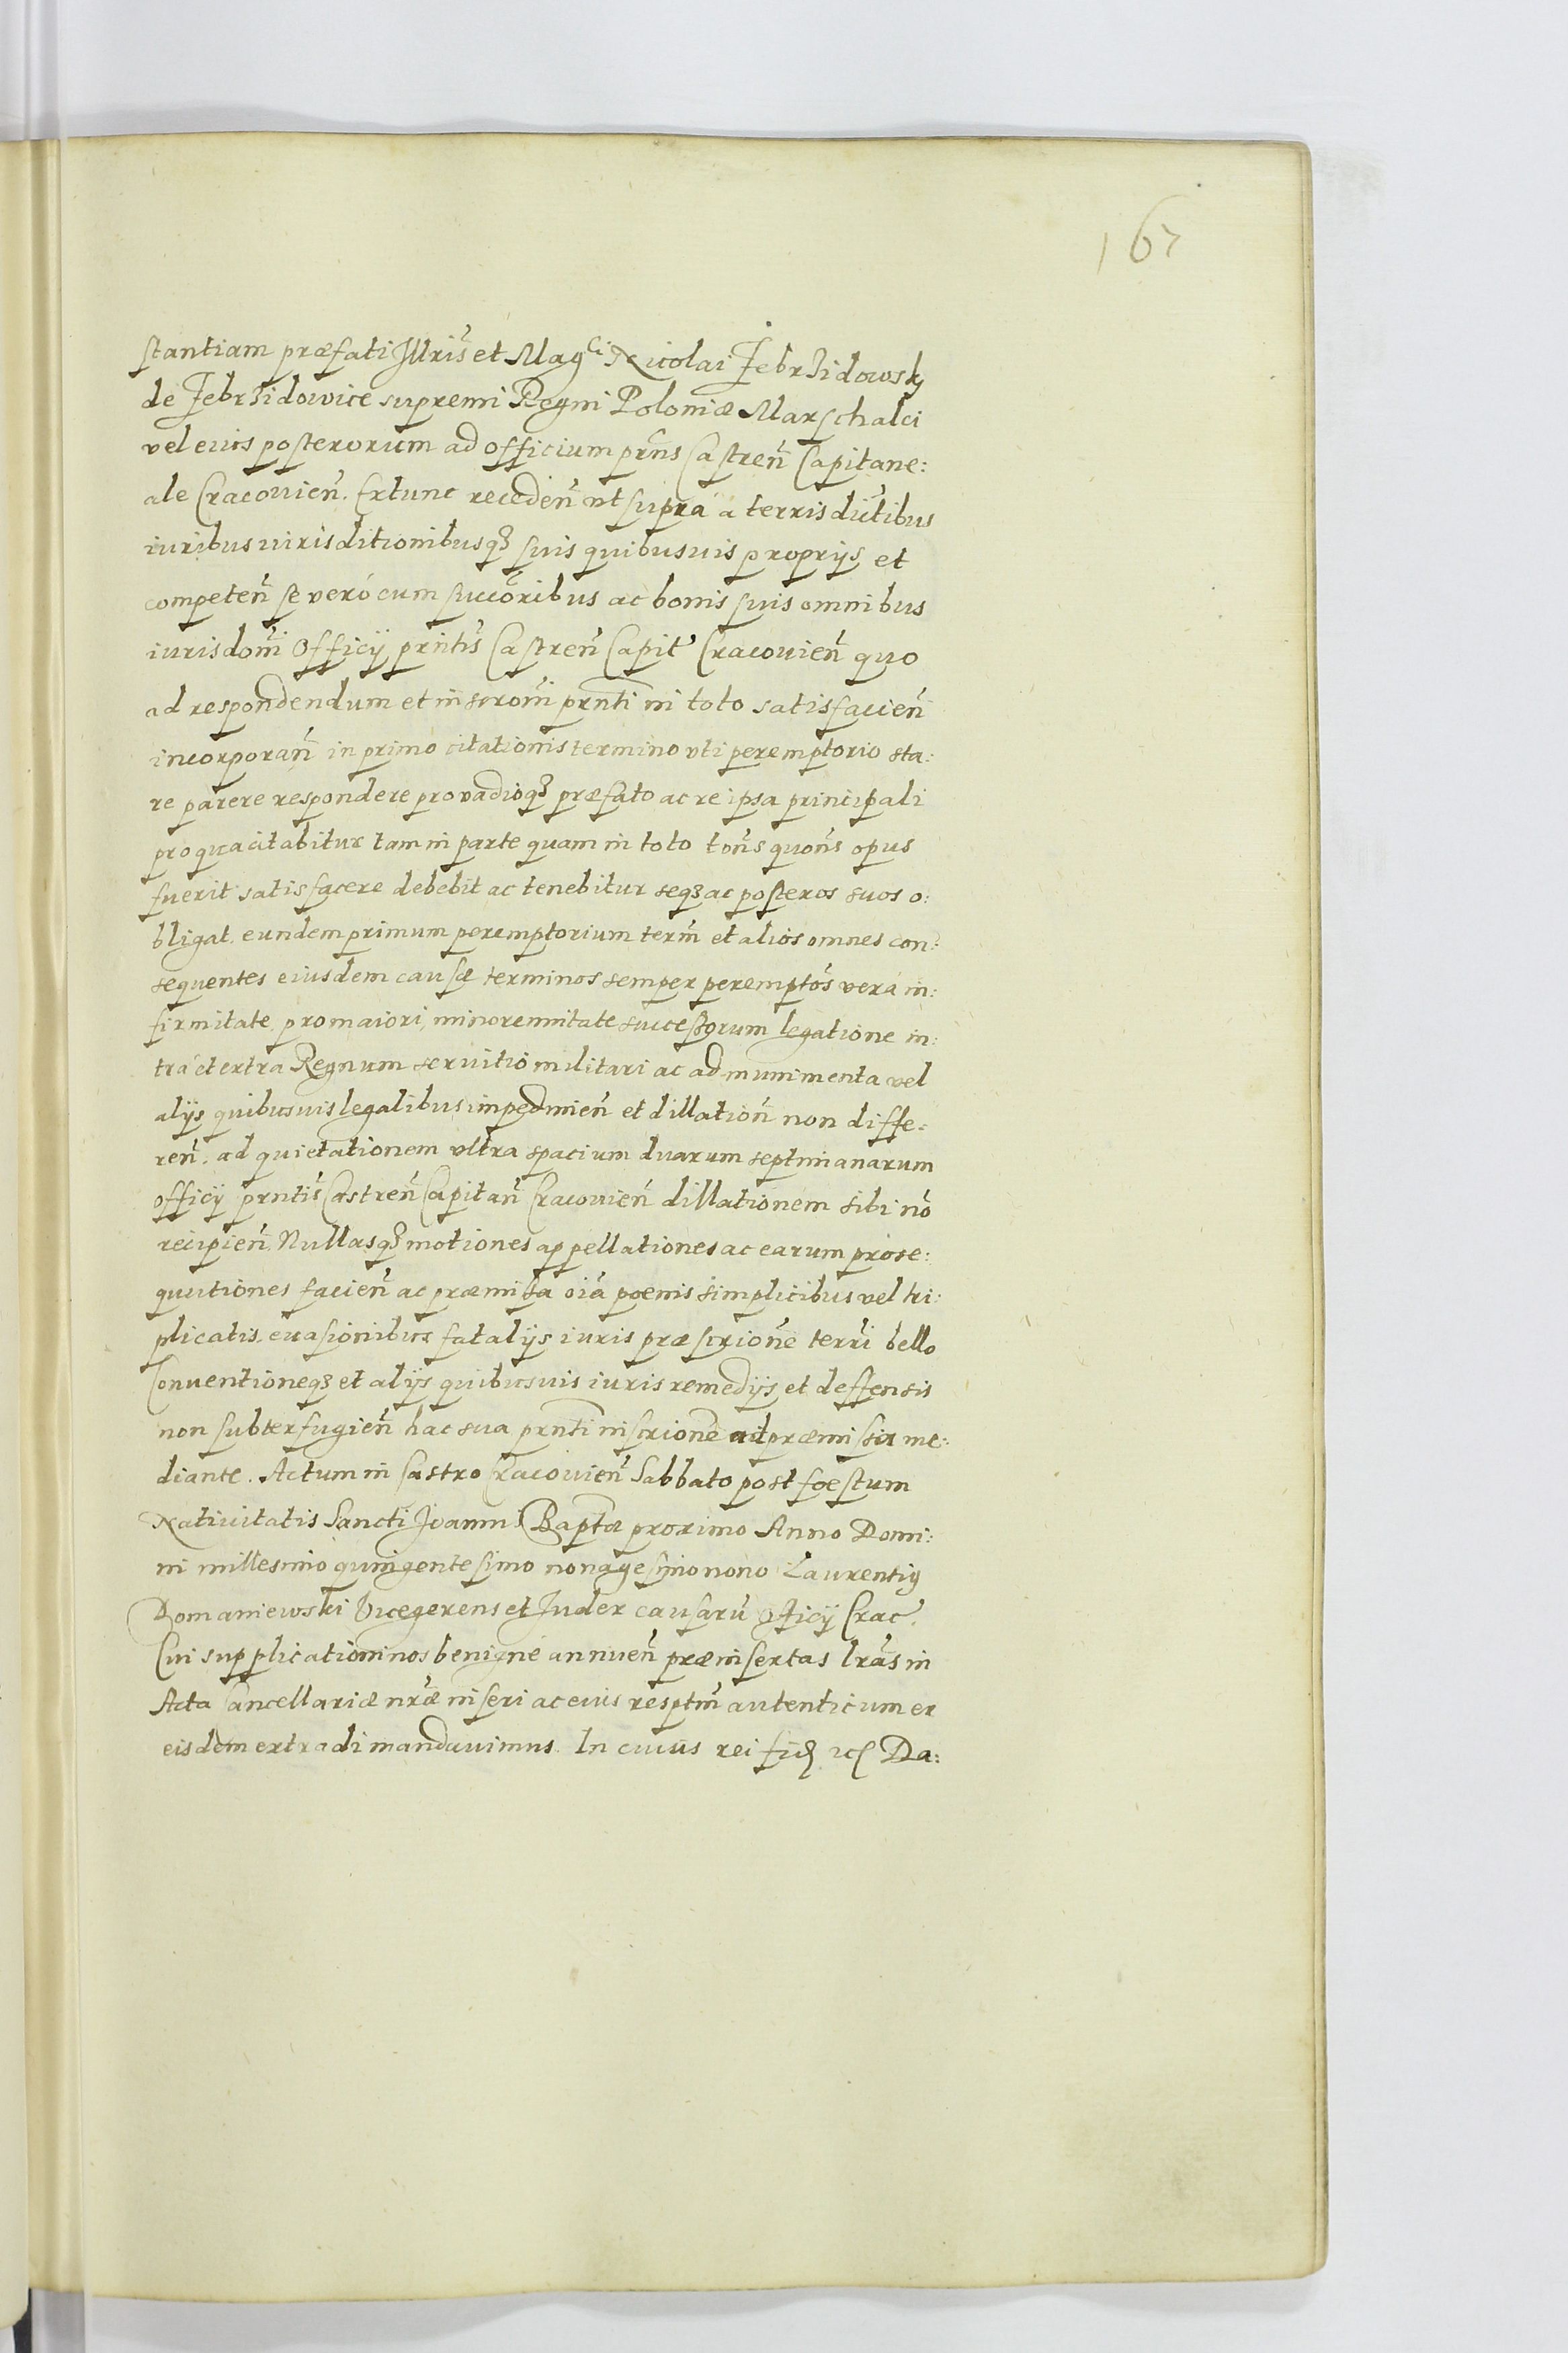 167
stantiam præfati Illris̃ et Mag^ci Nicolai Żebrzidowsky
de Zebrzidowice supremi Regni Poloniæ Marschalci
vel eius posterorum ad officium prñs Castreñ Capitane:
ale Cracouieñ. Extunc recedeñ vt supra a terris dic̃tibus
iuribus iurisditionibusq3 suis quibusuis proprijs et
competeñ se veró cum succõribus ac bonis suis omnibus
iurisdom̃i Officij prñtis Castreñ Capit̃ Cracouieñ quo
ad respondendum et inscrom̃i prñti in toto satisfacieñ
incorporañ in primo citationis termino vti peremptorio sta:
re parere respondere pro vadioq3 præfato ac re ipsa principali
pro qua citabitur tam in parte quam in toto toñs quoñs opus
fuerit satisfacere debebit ac tenebitur seq3 ac posteros suos o:
bligat. eundem primum peremptorium term̃ et alios omnes con:
sequentes eiusdem causæ terminos semper peremptõs verá in:
firmitate. pro maiori, minorennitate successorum legatione in:
trá et extra Regnum seruitio militari ac ad munimenta vel
alijs quibusuis legalibus impedmieñ et dillatioñ non diffe:
reñ. ad quietationem vltra spacium duarum septimanarum
officij prñtis Castreñ Capitañ Cracouieñ dillationem sibi nõ
recipieñ. Nullasq3 motiones appellationes ac earum prose:
quutiones facieñ ac præmissa oĩa poenis simplicibus vel tri:
plicatis. euasionibus fatalijs iuris præscrioñe terr̃i bello
Conuentioneq3 et alijs quibusuis iuris remedijs et deffensis
non subterfugieñ hac sua prñti inscrioñe ad præmissa me:
diante. Actum in Castro Cracouieñ Sabbato post foestum
Natiuitatis Sancti Joannis Baptæ proximo Anno Domi:
ni millesimo quingentesimo nonagesimo nono Laurentiy
Domaniewski Vicegerens et Judex causarũ Officij Crac̃.
Cui supplicationi nos benigné annueñ præinsertas lrãs in
Acta Cancellariæ nrã inseri ac eius resptm̃ autenticum ex
eisdem extradi mandauimus. In cuius rei fid. etc Da: